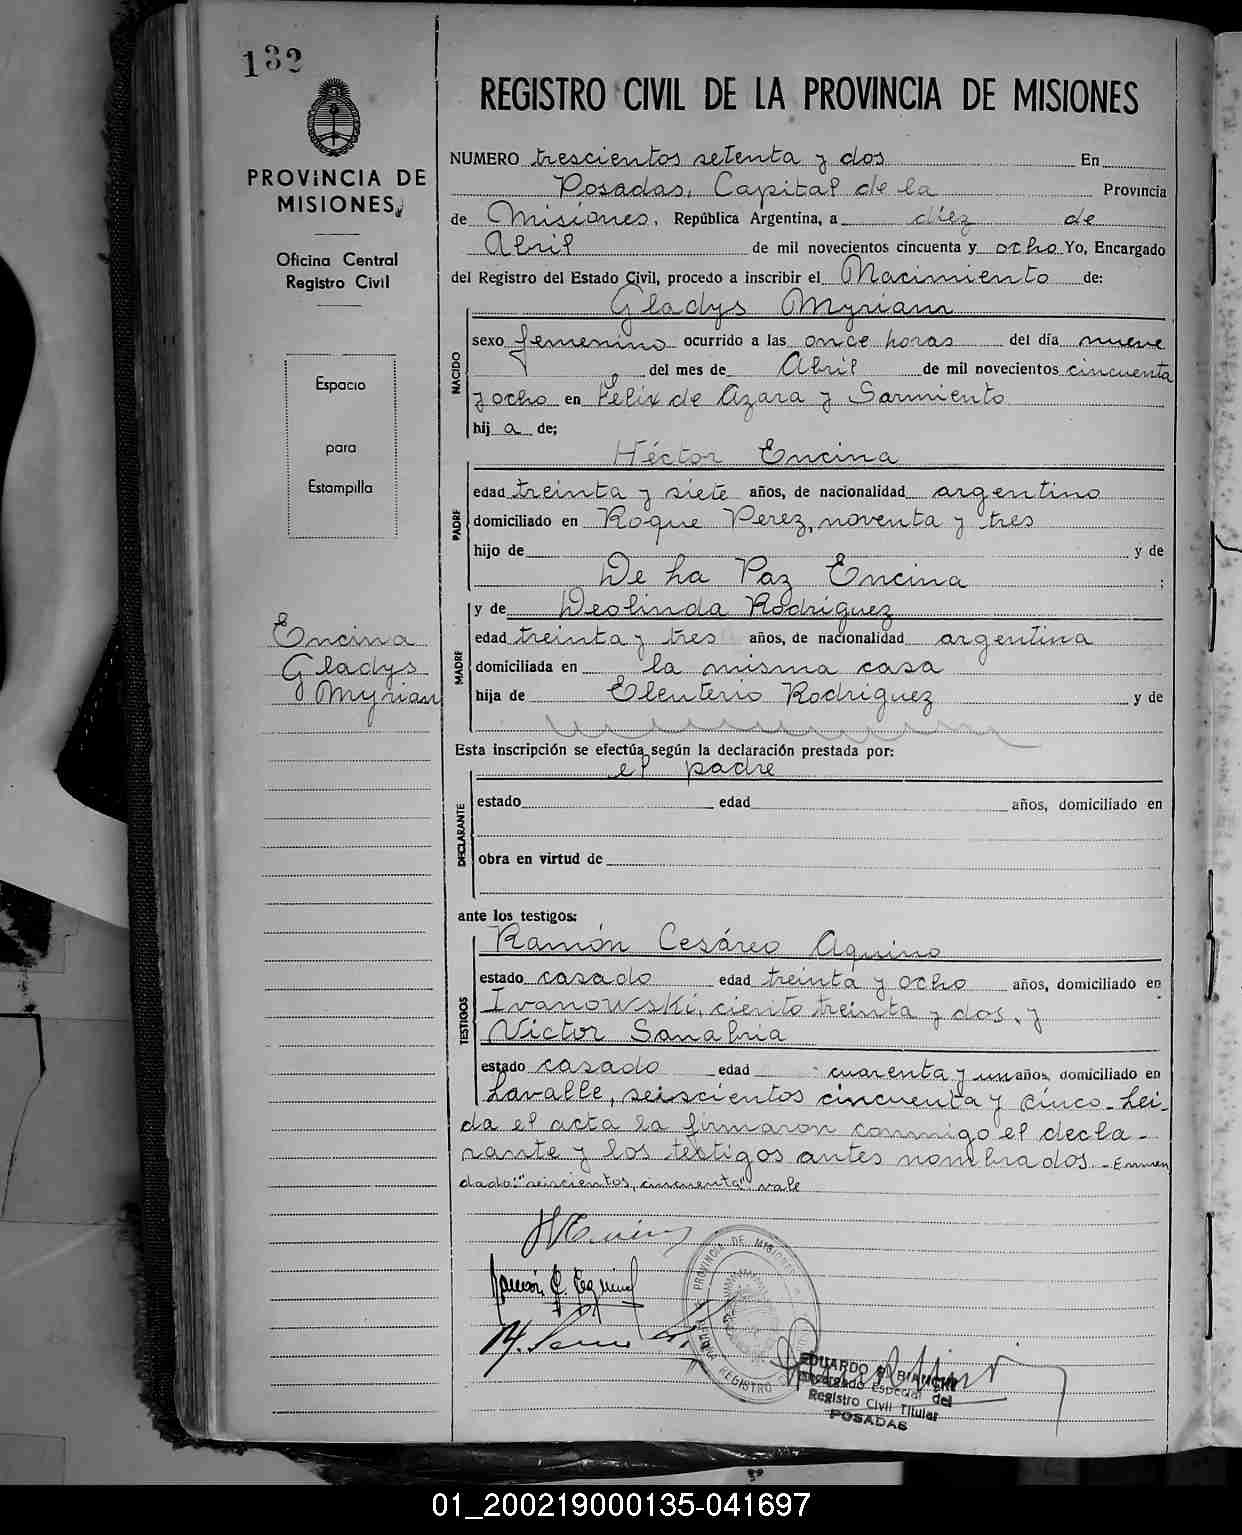 132
PROVINCIA DE
MISIONES
Oficina Central
Registro Civil
Espacio
para
Estampilla
Encina
Gladys
Myrian
REGISTRO CIVIL DE LA PROVINCIA DE MISIONES
NUMERO trescientos setenta y dos En
Posadas, Capital de la Provincia
de Misiones, República Argentina, a diez de
Abril de mil novecientos cincuenta y ocho Yo, Encargado
del Registro del Estado Civil, procedo a inscribir el Nacimiento de:
Gladys Myriam
NACIDO
sexo femenino ocurrido a las once horas del día nueve
del mes de Abril de mil novecientos cincuenta
y ocho en Félix de Azara y Sarmiento
hij a de;
Héctor Encina
PADRE
edad treinta y siete años, de nacionalidad argentino
domiciliado en Roque Perez, noventa y tres
hijo de y de
De La Paz Encina ;
y de Deolinda Rodriguez
MADRE
edad treinta y tres años, de nacionalidad argentina
domiciliada en la misma casa
hija de Eleuterio Rodriguez y de
Esta inscripción se efectúa según la declaración prestada por:
el padre
DECLARANTE
estado edad años, domiciliado en
obra en virtud de
ante los testigos:
Ramón Cesáreo Aquino
TESTIGOS
estado casado edad treinta y ocho años, domiciliado en
Ivanowski, ciento treinta y dos, y
Victor Sanabria
estado casado edad cuarenta y un años, domiciliado en
Lavalle, seiscientos cincuenta y cinco - Lei-
da el acta la firmaron conmigo el decla-
rante y los testigos antes nombrados. - Enmen
dado: "seiscientos, cincuenta" vale
PROVINCIA DE MISIONES
REGISTRO
EDUARDO BIANCHI
Encargado Especial del
Registro Civil Titular
POSADAS
01_200219000135-041697